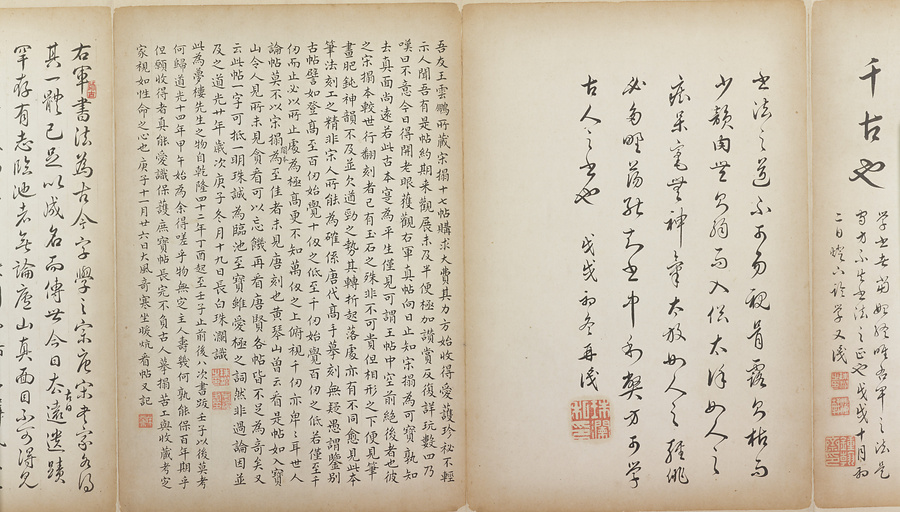 千古也
右軍之法是
方不失書法之正也戊戌十月初
二日燈下 學又識
書法之道不可易視骨露欠枯而
少韻肉無欠弱而入俗太 如人之
癡呆毫無神氣太放如人之輕佻
必多野蕩能知書中和 方可學
古人之書也 戊戌初冬再識
吾友王雲鵬所藏宋搨十七帖購求大費其力方始收得愛護珍祕不輕
示人聞吾有是帖約期來觀展未及半便極加讚賞反復詳玩數四乃
嘆曰不意今日得開老眼獲觀右軍真帖向日止知宋搨為可寶孰知
去真面尚遠若此古本寔為平生僅見可謂王帖中空前絕後者也彼
之宋搨本較世行翻刻者已有玉石之殊非不可貴但相形之下便見筆
畫肥鈍神韻不及並欠遒勁之勢其轉折起落處亦有不同愈見此本
筆法刻工之精非宋人所能為確係唐代高手摹刻無疑愚謂鑒別
古帖譬如登高至百仞始覺十仞之低至千仞始覺百仞之低若僅至千
仞而止必以所止處為極高更不知萬仞之上俯視千仞亦卑卑耳世人
論帖莫不以宋搨為至佳者未見唐刻也黃琴山曾云看是帖如入寶
山令人見所未見貪看可以忘饑再看唐賢各帖皆不足為奇矣又
云此帖一字可抵一明珠誠為臨池至寶雖愛極之詞然非過論因並
及之道光廿年歲次庚子冬月十九日長白珠瀾識
此為夢樓先生之物自乾隆四十二年丁酉起至壬子止前後八次書跋壬子以後莫考
何歸道光十四年甲午始為余得嗟乎物無定主人壽幾何孰能保百年期乎
但願收得者真能愛識保護庶寶帖長完不負古人摹搨苦工與收藏考定
家視如性命之心也庚子十一月廿六日大風奇寒坐暖炕看帖又記
右軍書法為古今字學之宗唐宋 家各得
其一體已足以成名而傳世今日去古日遠遺蹟
罕存有志臨池者無論廬山真面目不可得見